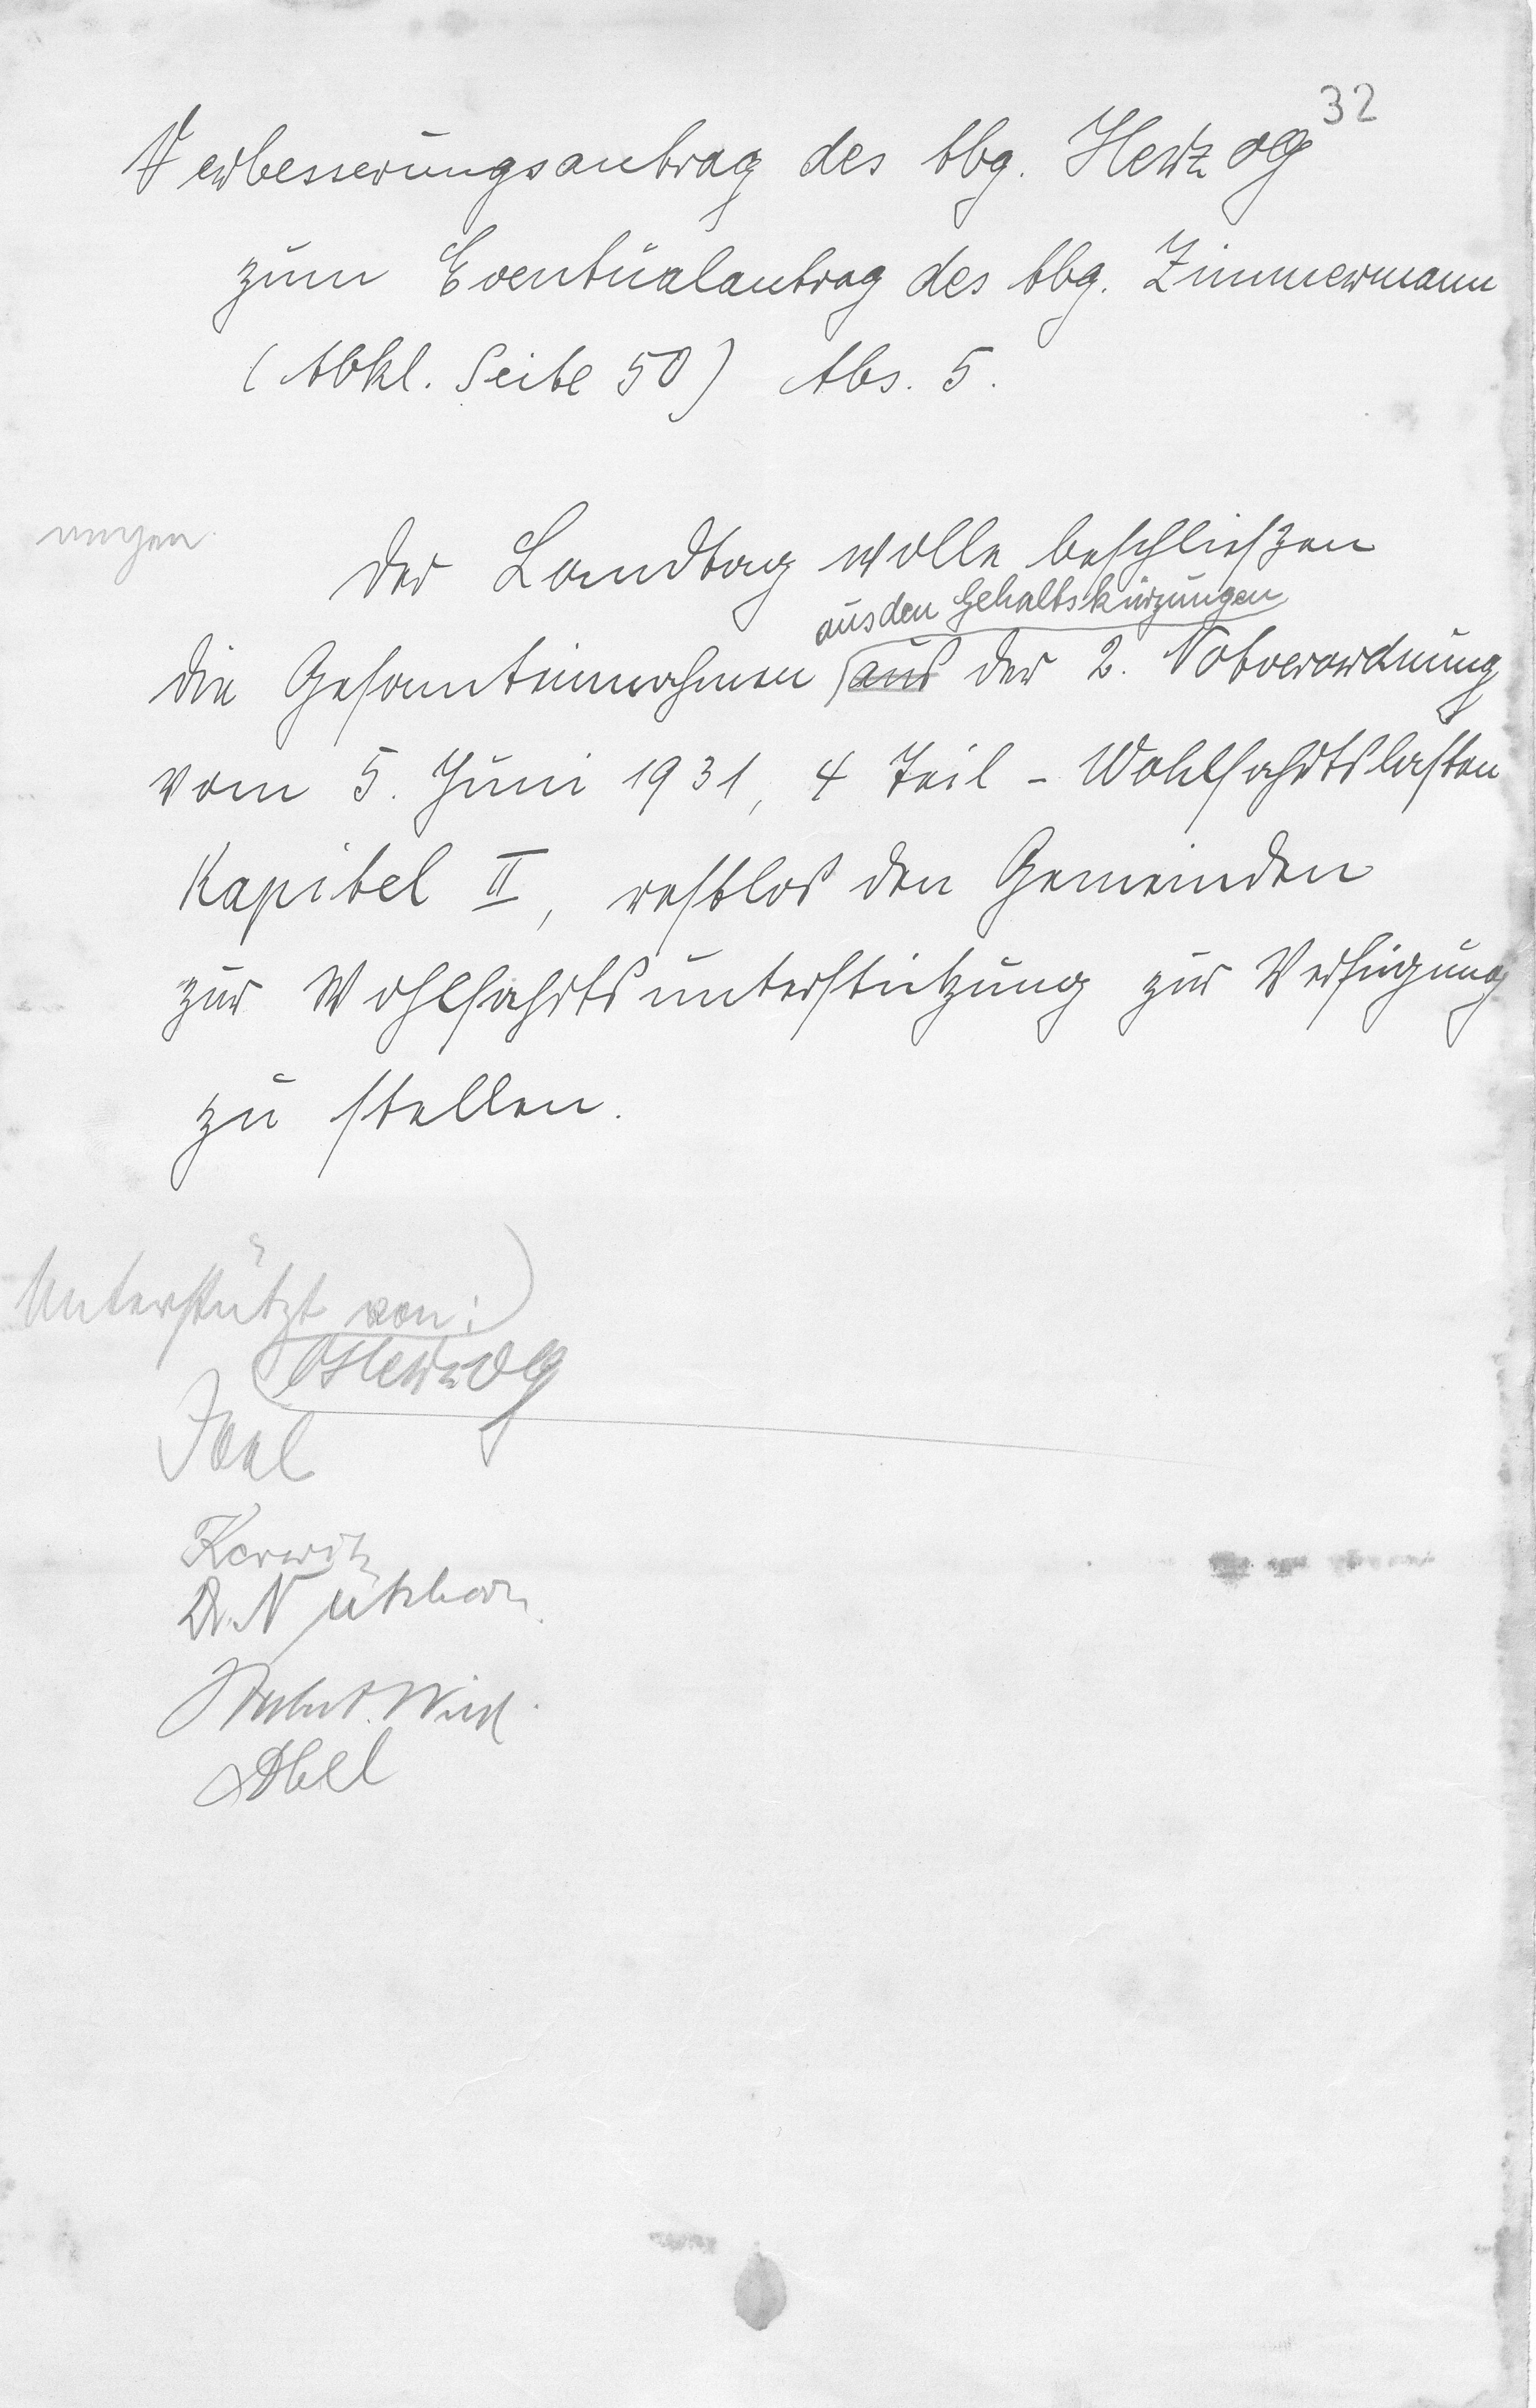 32
Verbesserungsantrag des Abg. Herzog
zum Eventualantrag des Abg. Zimmermann
(Abkl. Seite 50) Abs. 5.
ungen
Der Landtag wolle beschließen
aus den Gehaltskürzungen
die Gesamteinnahmen aus der 2. Notverordnung
vom 5. Juni 1931, 4 Teil - Wohlfahrtslasten
Kapitel II, restlos den Gemeinden
zur Wohlfahrtsunterstützung zur Verfügung
zu stellen.
Unterstützt von:
Herzog
Dr. N
Abel